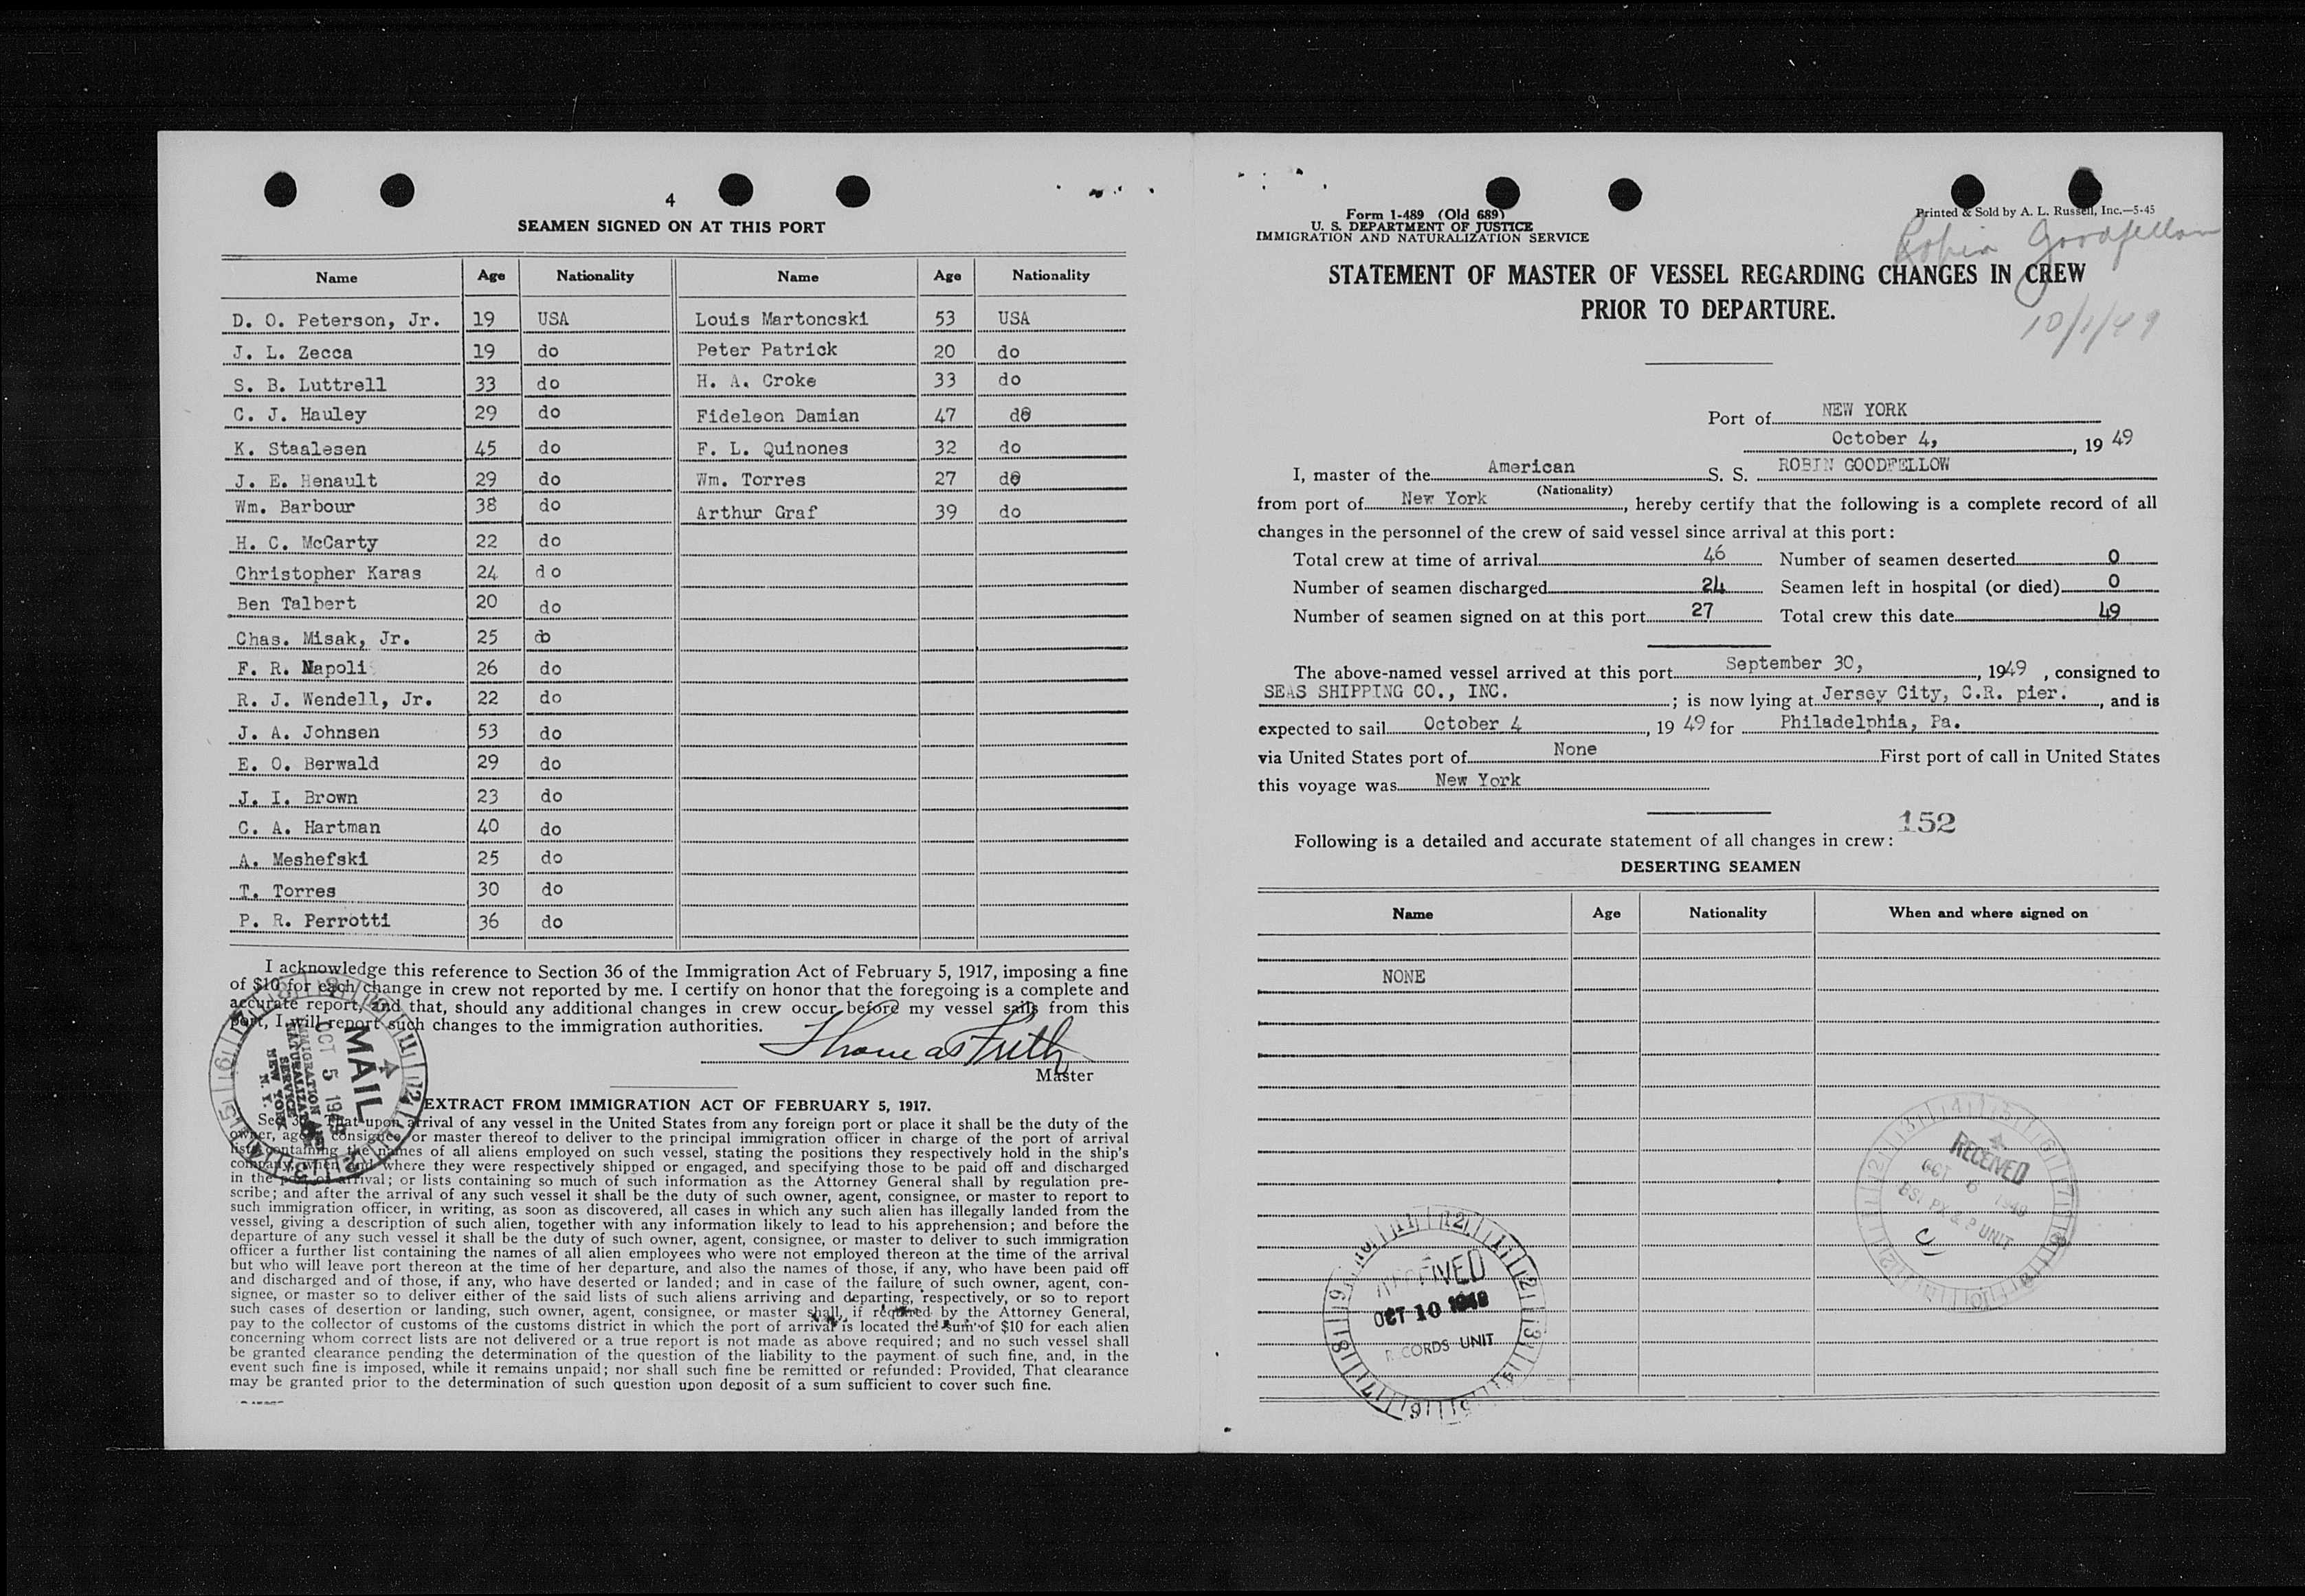 4
SEAMEN SIGNED ON AT THIS PORT
Name Age Nationality Name Age Nationality
D. O. Peterson, Jr. 19 USA Louis Martoncski 53 USA
J. L. Zecca 19 do Peter Patrick 20 do
S. B. Luttrell 33 do H. A. Croke 33 do
C. J. Hauley 29 do Fideleon Damian 47 do
K. Staalesen 45 do F. L. Quinones 32 do
J. E. Henault 29 do Wm. Torres 27 do
Wm. Barbour 38 do Arthur Graf 39 do
H. C. McCarty 22 do
Christopher Karas 24 do
Ben Talbert 20 do
Chas. Misak, Jr. 25 do
F. R. Napoli 26 do
R. J. Wendell, Jr. 22 do
J. A. Johnsen 53 do
E. O. Berwald 29 do
J. I. Brown 23 do
C. A. Hartman 40 do
A. Meshefski 25 do
T. Torres 30 do
P. R. Perrotti 36 do
I acknowledge this reference to Section 36 of the Immigration Act of February 5, 1917, imposing a fine
of $10 for each change in crew not reported by me. I certify on honor that the foregoing is a complete and
accurate report, and that, should any additional changes in crew occur before my vessel sails from this
port, I will report such changes to the immigration authorities.
Thomas Frith
Master
MAIL
OCT 5 1949
IMMIGRATION AND
NATURALIZATION
SERVICE
NEW YORK
N. Y.
EXTRACT FROM IMMIGRATION ACT OF FEBRUARY 5, 1917.
Sec. 36. That upon arrival of any vessel in the United States from any foreign port or place it shall be the duty of the
owner, agent, consignee, or master thereof to deliver to the principal immigration officer in charge of the port of arrival
lists containing the names of all aliens employed on such vessel, stating the positions they respectively hold in the ship's
company, when and where they were respectively shipped or engaged, and specifying those to be paid off and discharged
in the port of arrival; or lists containing so much of such information as the Attorney General shall by regulation pre-
scribe; and after the arrival of any such vessel it shall be the duty of such owner, agent, consignee, or master to report to
such immigration officer, in writing, as soon as discovered, all cases in which any such alien has illegally landed from the
vessel, giving a description of such alien, together with any information likely to lead to his apprehension; and before the
departure of any such vessel it shall be the duty of such owner, agent, consignee, or master to deliver to such immigration
officer a further list containing the names of all alien employees who were not employed thereon at the time of the arrival
but who will leave port thereon at the time of her departure, and also the names of those, if any, who have been paid off
and discharged and of those, if any, who have deserted or landed; and in case of the failure of such owner, agent, con-
signee, or master so to deliver either of the said lists of such aliens arriving and departing, respectively, or so to report
such cases of desertion or landing, such owner, agent, consignee, or master shall, if required by the Attorney General,
pay to the collector of customs of the customs district in which the port of arrival is located the sum of $10 for each alien
concerning whom correct lists are not delivered or a true report is not made as above required; and no such vessel shall
be granted clearance pending the determination of the question of the liability to the payment of such fine, and, in the
event such fine is imposed, while it remains unpaid; nor shall such fine be remitted or refunded: Provided, That clearance
may be granted prior to the determination of such question upon deposit of a sum sufficient to cover such fine.
Form 1-489 (Old 689)
U. S. DEPARTMENT OF JUSTICE
IMMIGRATION AND NATURALIZATION SERVICE
Printed & Sold by A. L. Russell, Inc.—5-45
Robin Goodfellow
10/1/49
STATEMENT OF MASTER OF VESSEL REGARDING CHANGES IN CREW
PRIOR TO DEPARTURE.
Port of NEW YORK
October 4, , 19 49
I, master of the American S. S. ROBIN GOODFELLOW
(Nationality)
from port of New York , hereby certify that the following is a complete record of all
changes in the personnel of the crew of said vessel since arrival at this port:
Total crew at time of arrival 46 Number of seamen deserted 0
Number of seamen discharged 24 Seamen left in hospital (or died) 0
Number of seamen signed on at this port 27 Total crew this date 49
The above-named vessel arrived at this port September 30, , 1949 , consigned to
SEAS SHIPPING CO., INC. ; is now lying at Jersey City, C.R. pier. , and is
expected to sail October 4 , 19 49 for Philadelphia, Pa.
via United States port of None First port of call in United States
this voyage was New York
152
Following is a detailed and accurate statement of all changes in crew:
DESERTING SEAMEN
Name Age Nationality When and where signed on
NONE
RECEIVED
OCT 6 1949
BSI PX & P UNIT
RECEIVED
OCT 10 1949
RECORDS UNIT